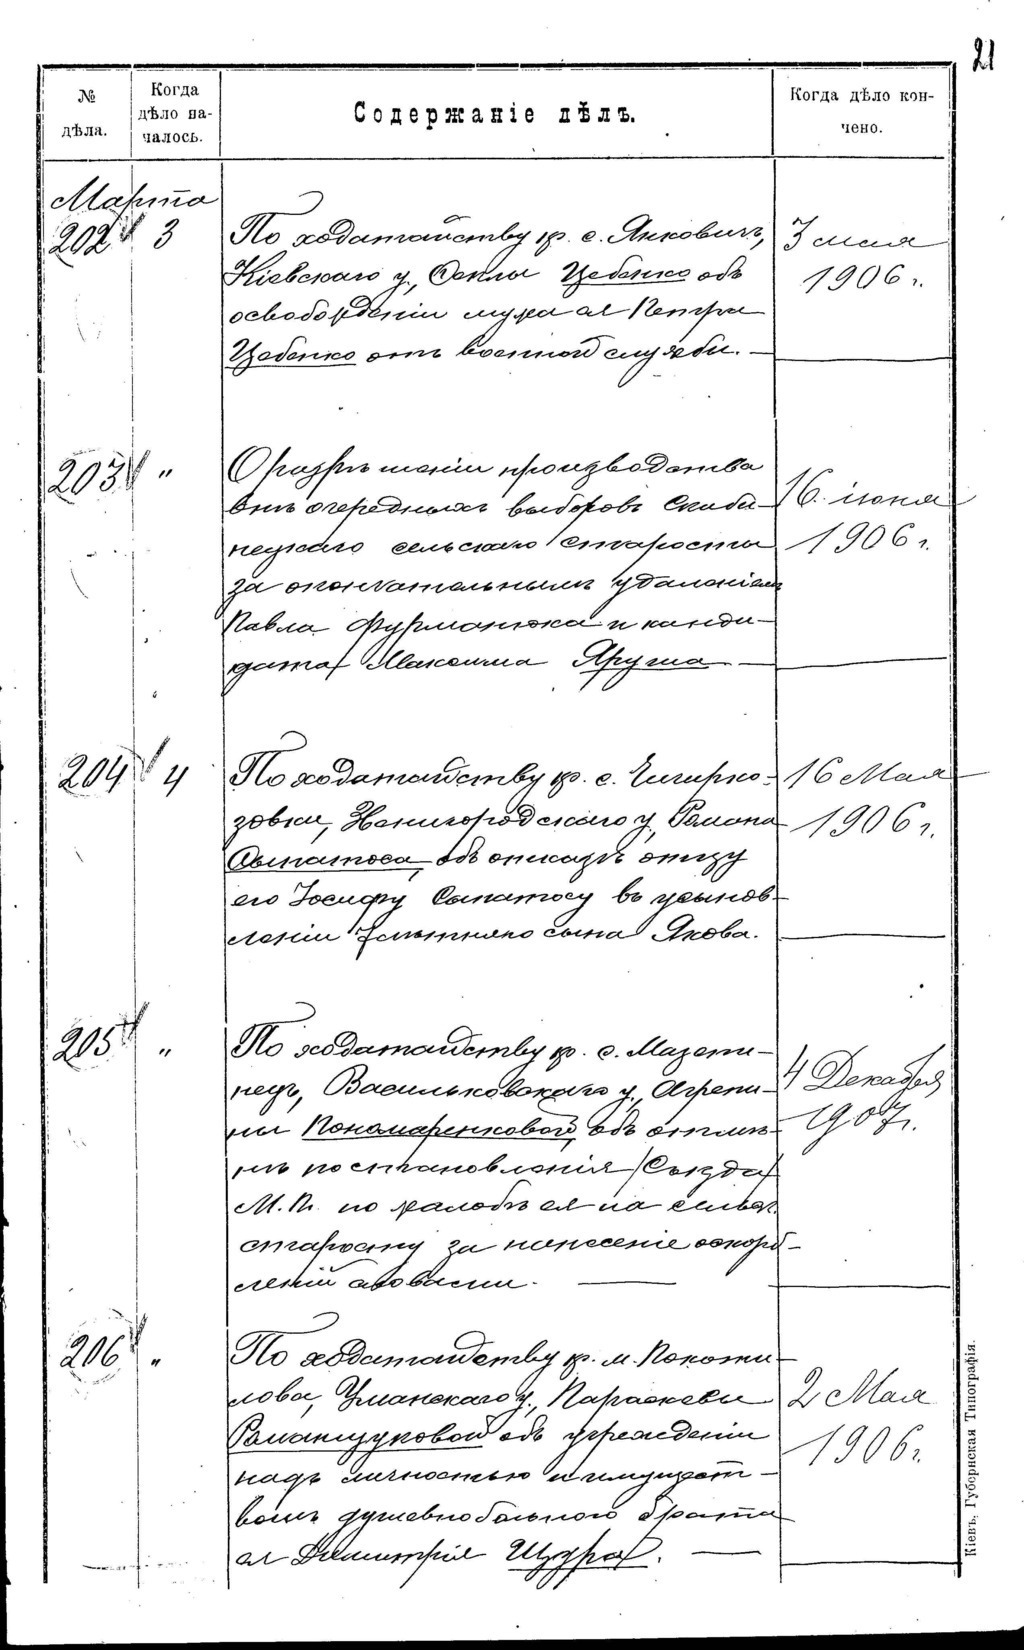 21
№ дѣла.
Когда дѣло началось.
Содержаніе дѣлъ.
Когда дѣло кончено.
Марта
202 3 По ходатайству кр. с. Янковичъ, 3 мая
Кіевскаго у., Феклы Цебенко объ 1906 г.
освобожденіи мужа ея Петра
Цебенко отъ военной службы. —
203 " О разрѣшеніи производства
внѣ очередныхъ выборовъ Скиби- 16 іюня
нецкаго сельскаго старосты 1906 г.
за окончательнымъ удаленіемъ
Павла Фурманюка и канди-
дата Максима Яруша —
204 4 По ходатайству кр. с. Чигирко- 16 Мая
зовки, Звенигородскаго у., Романа 1906 г.
Сыпатоса, объ отказѣ отцу
его Іосифу Сыпатосу въ усынов-
леніи сына Якова.
205 " По ходатайству кр. с. Мазепи-
нецъ, Васильковскаго у., Агрепи- 4 Декабря
ны Пономаренковой, объ отмѣ- 1907 г.
нѣ постановленія Съѣзда
М. П. по жалобѣ ея на сельск.
старосту за нанесеніе оскорб-
леній словами. —
206 " По ходатайству кр. м. Покоти-
лова, Уманскаго у., Параскевы 2 Мая
Романщуковой объ учрежденіи 1906 г.
надъ личностью и имущест-
вомъ душевнобольного брата
ея Димитрія Щура. —
Кіевъ, Губернская Типографія.